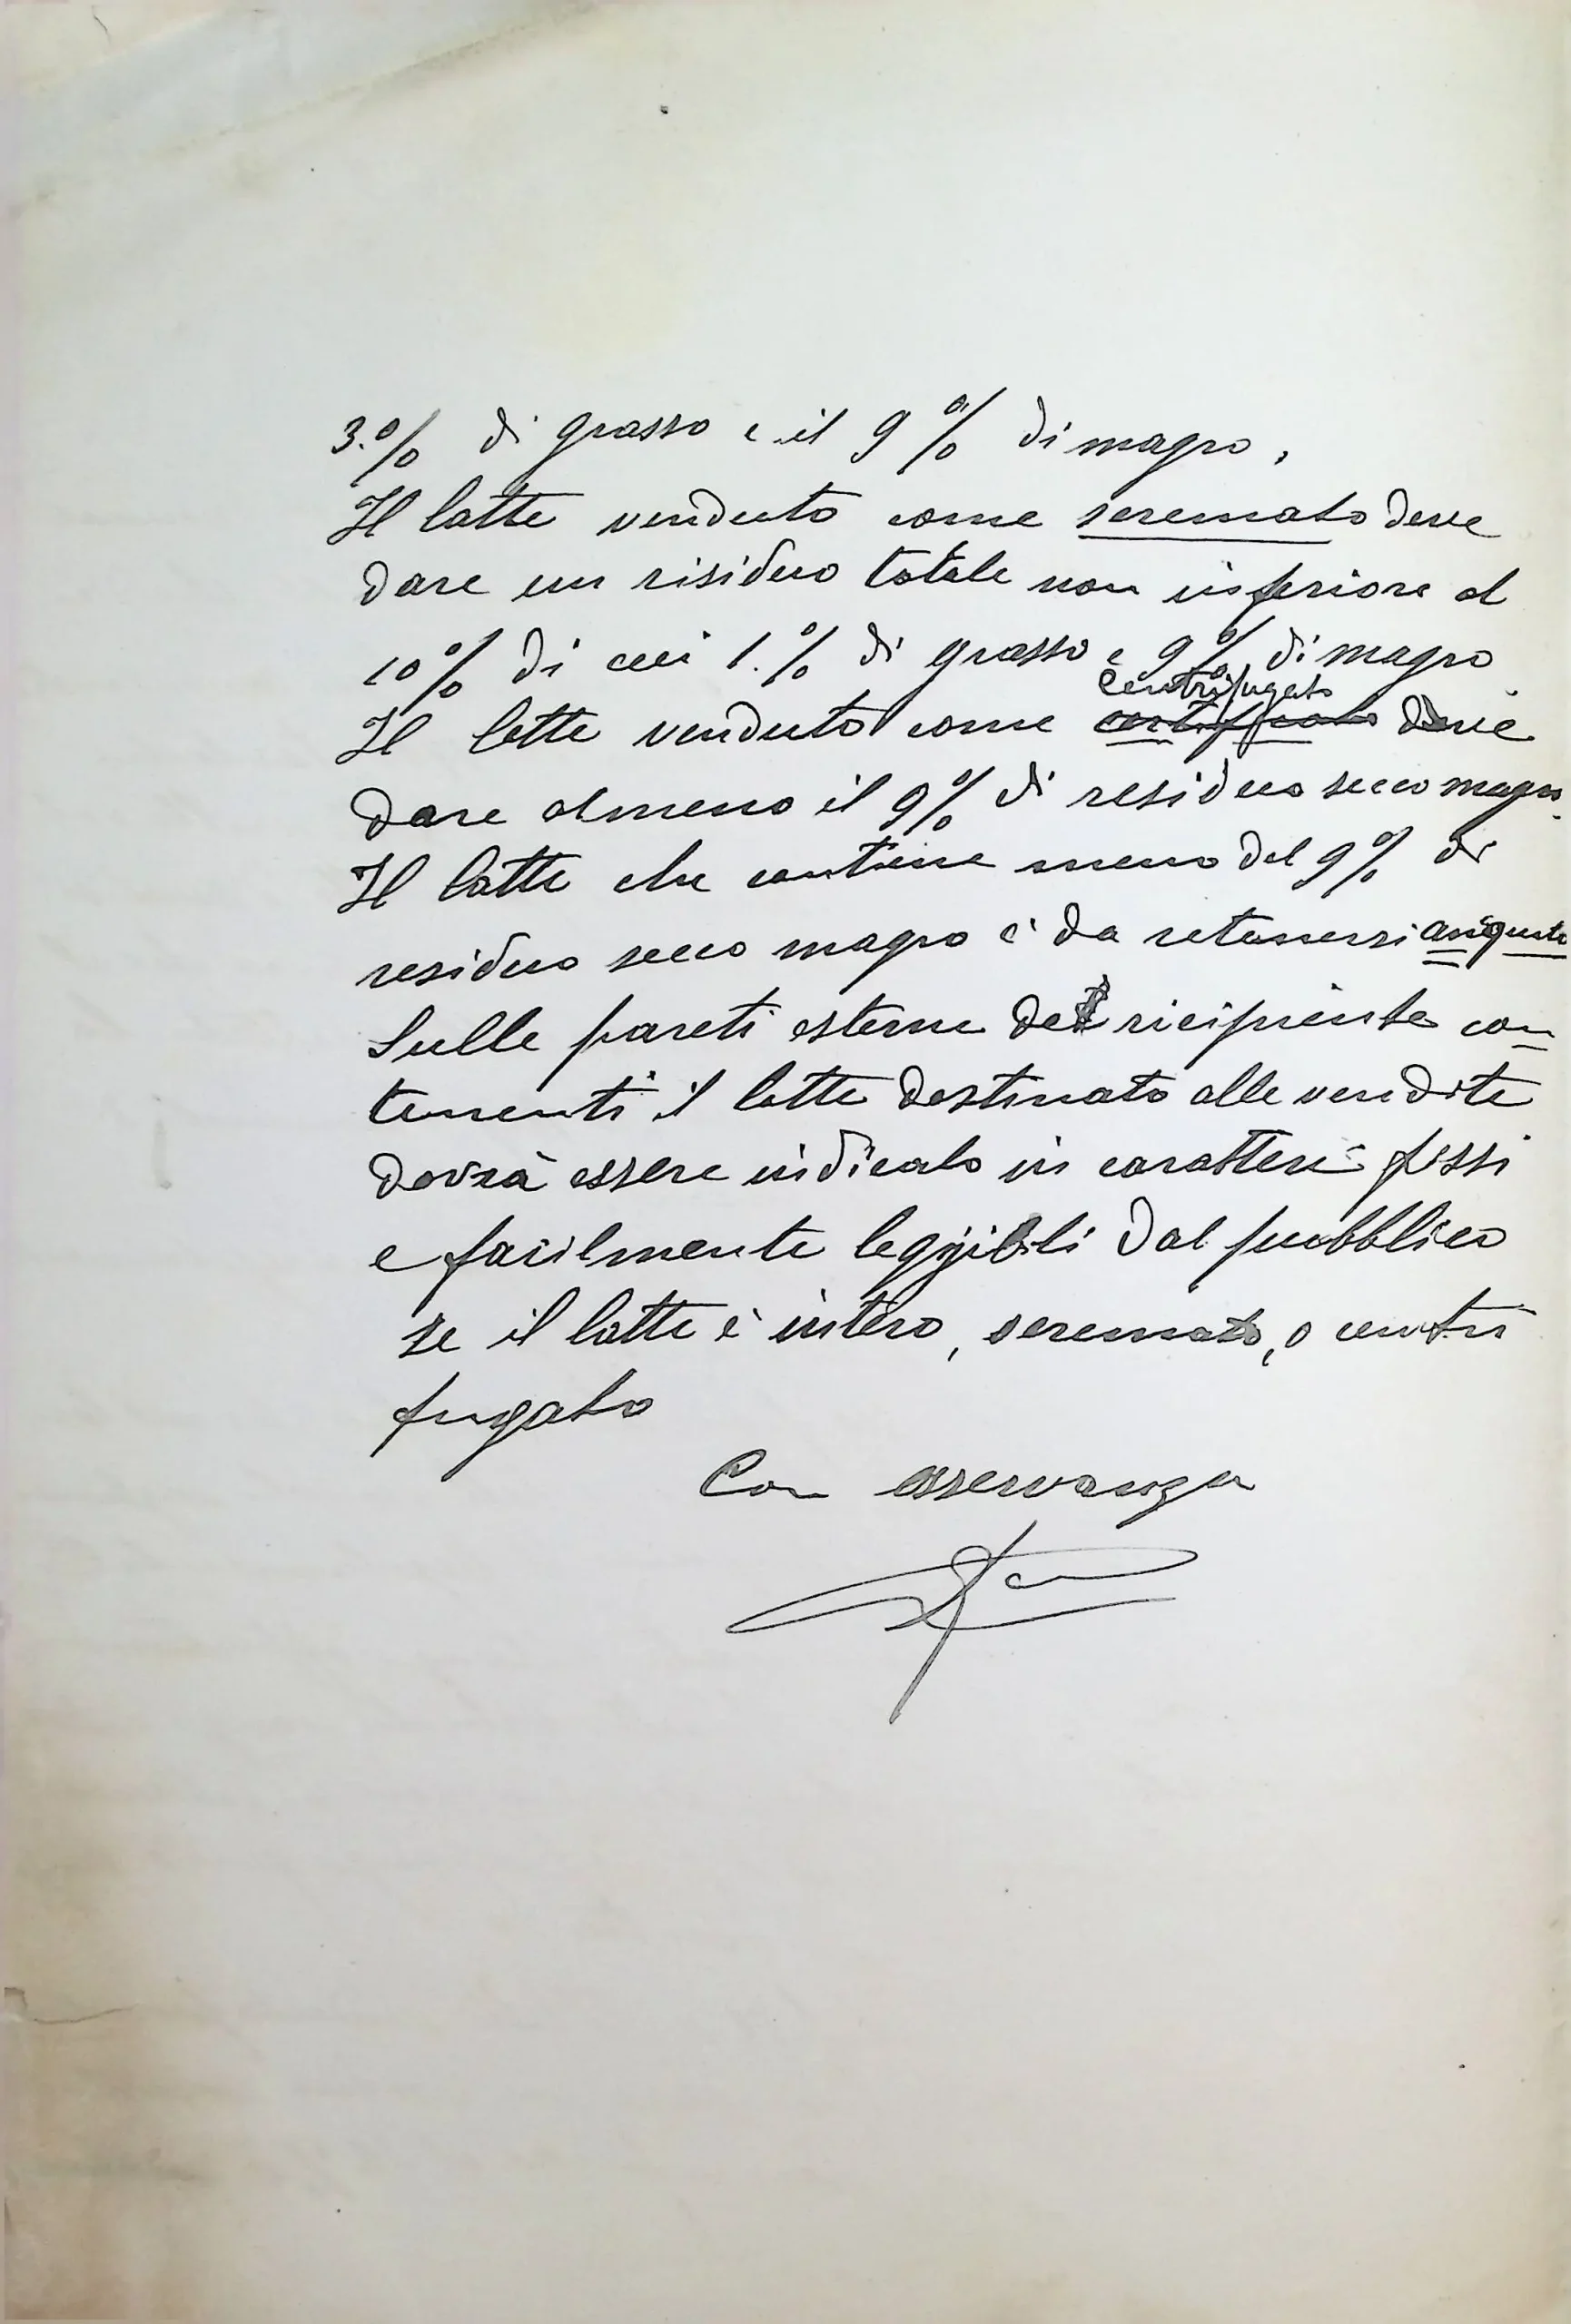 3.% di grasso e il 9% di magro.
Il latte venduto come scremato deve
dare un risiduo totale non inferiore al
10% di cui 1.% di grasso e 9% di magro
centrifugato
Il latte venduto come deve
dare almeno il 9% di residuo secco magro.
Il latte che contiene meno del 9% di
residuo secco magro è da retenersi
Sulle pareti esterne dei ricipiente con
tenenti il latte destinato alle vendite
dovrà essere indicato in caratteri fissi
e facilmente leggibili dal pubblico
se il latte è intero, scremato, o centri
fugato
Con osservanza